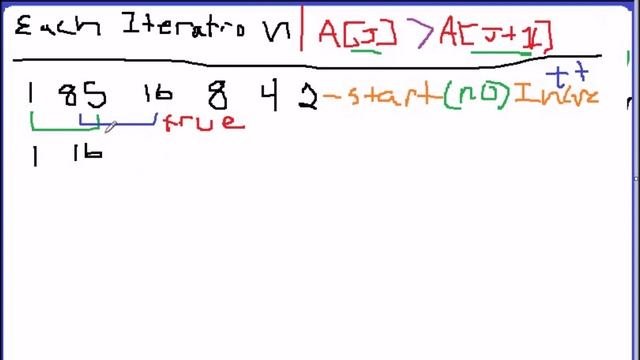 Each Iteration | A[J] > A[J+1]
1 85 16 8 4 2 - start (no)
true
1 16